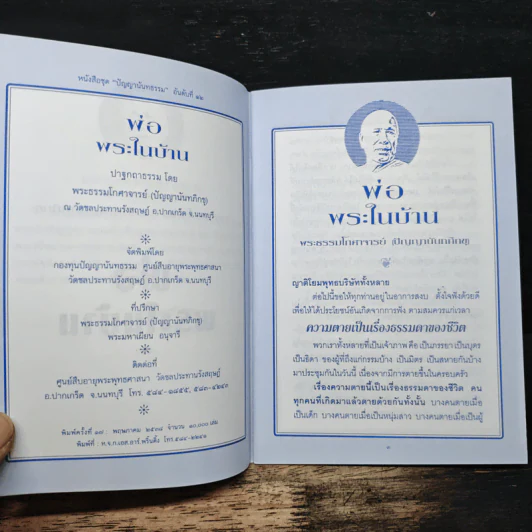 หนังสือชุด "ปัญญานันทธรรม" อันดับที่ ๑๒
พ่อ
พระในบ้าน
ปาฐกถาธรรม โดย
พระธรรมโกศาจารย์ (ปัญญานันทภิกขุ)
ณ.วัดชลประทานรังสฤษฏ์ อ.ปากเกร็ด จ.นนทบุรี
จัดพิมพ์โดย
กองทุนปัญญานันทธรรม ศูนย์สืบอายุพระพุทธศาสนา
วัดชลประทานรังสฤษฏ์ อ.ปากเกร็ด จ.นนทบุรี
ที่ปรึกษา
พระธรรมโกศาจารย์ (ปัญญานันทภิกขุ)
พระมหาเผียน อนุจารี
ติดต่อที่
ศูนย์สืบอายุพระพุทธศาสนา วัดชลประทานรังสฤษฏ์
อ.ปากเกร็ด จ.นนทบุรี โทร.
พิมพ์ครั้งที่ : พฤษภาคม ๒๕๓๘ จำนวน ๑๐,๐๐๐ เล่ม
พิมพ์ที่ : ห.จ.ก.เอส.อาร์.พริ้นติ้ง โทร.
พ่อ
พระในบ้าน
พระธรรมโกศาจารย์ (ปัญญานันทภิกขุ)
ญาติโยมพุทธบริษัททั้งหลาย
ต่อไปนี้ขอให้ทุกท่านอยู่ในอาการสงบ ตั้งใจฟังด้วยดี
เพื่อให้ได้ประโยชน์อันเกิดจากการฟัง ตามสมควรแก่เวลา
ความตายเป็นเรื่องธรรมดาของชีวิต
พวกเราทั้งหลายที่เป็นเจ้าภาพ คือ เป็นภรรยา เป็นบุตร
เป็นธิดา ของผู้ที่ถึงแก่กรรมบ้าง เป็นมิตร เป็นสหายกันบ้าง
มาประชุมกันในวันนี้ เนื่องจากมีการตายขึ้นในครอบครัว
เรื่องความตายนี้เป็นเรื่องธรรมดาของชีวิต คน
ทุกคนที่เกิดมาแล้วตายด้วยกันทั้งนั้น บางคนตายเมื่อ
เป็นเด็ก บางคนตายเมื่อเป็นหนุ่มสาว บางคนตายเมื่อเป็นผู้